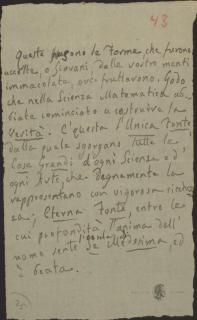 43
Queste sono le Forme, che furono
accolte, o Giovani dalle vostre menti
immacolate, ove fruttarono, Godo
che nella Scienza Matematica ab-
biate cominciato a costruire la
Verità. È questa l'Unica Fonte
dalla quale sgorgano tutte le
Cose Grandi d'ogni Scienza ed
ogni Arte, che degnamente la
rappresentano con vigorosa
Eterna Fonte, entro le
cui profondità l'anima dell'
uomo sente la Medesima, ed
è beata.